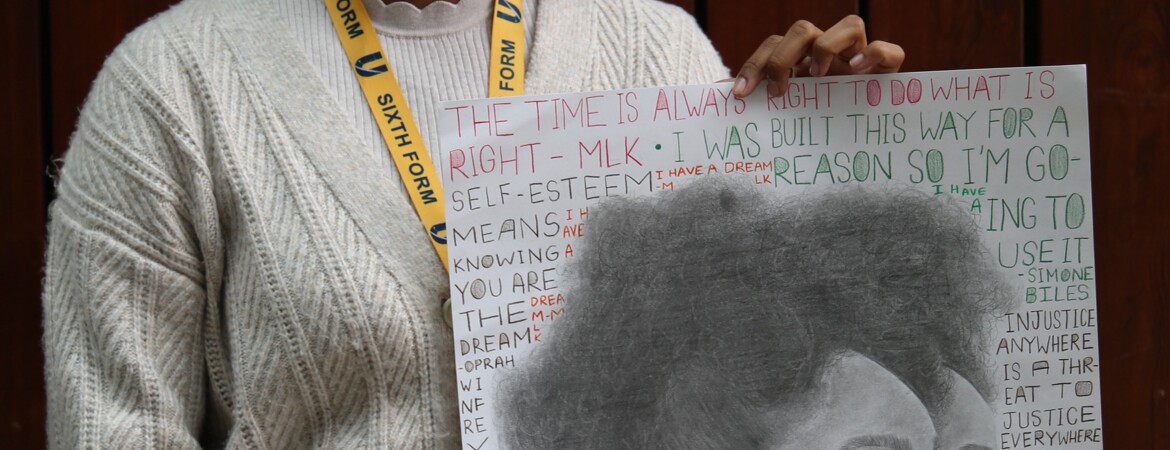 FORM
SIXTH FORM
FORM
THE TIME IS ALWAYS RIGHT TO DO WHAT IS
RIGHT - MLK • I WAS BUILT THIS WAY FOR A
REASON SO I'M GO-
ING TO
USE IT
-SIMONE
BILES
SELF-ESTEEM
MEANS
KNOWING
YOU ARE
THE
DREAM
-OPRAH
WI
NF
RE
Y
I HAVE A DREAM
-M LK
I H
AVE
A
DREA
M-M
L
K
I HAVE
A
INJUSTICE
ANYWHERE
IS A THR-
EAT TO
JUSTICE
EVERYWHERE